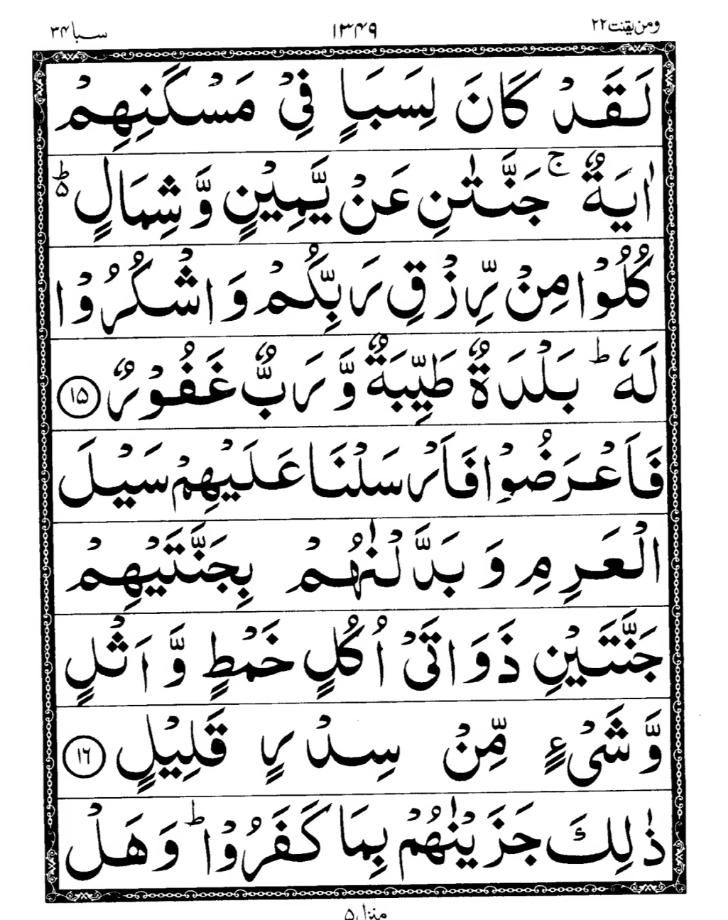 ومن یقنت ۲۲
۱۳۴۹
سبا ۳۴
لَقَدْ كَانَ لِسَبَاٍ فِيْ مَسْكَنِهِمْ
اٰيَةٌ ۚ جَنَّتٰنِ عَنْ يَّمِيْنٍ وَّشِمَالٍ ؕ۬
كُلُوْا مِنْ رِّزْقِ رَبِّكُمْ وَاشْكُرُوْا
لَهٗ ؕ بَلْدَةٌ طَيِّبَةٌ وَّرَبٌّ غَفُوْرٌ ۱۵
فَاَعْرَضُوْا فَاَرْسَلْنَا عَلَيْهِمْ سَيْلَ
الْعَرِمِ وَبَدَّلْنٰهُمْ بِجَنَّتَيْهِمْ
جَنَّتَيْنِ ذَوَاتَيْ اُكُلٍ خَمْطٍ وَّاَثْلٍ
وَّشَيْءٍ مِّنْ سِدْرٍ قَلِيْلٍ ۱۶
ذٰلِكَ جَزَيْنٰهُمْ بِمَا كَفَرُوْا ؕ وَهَلْ
منزل ۵